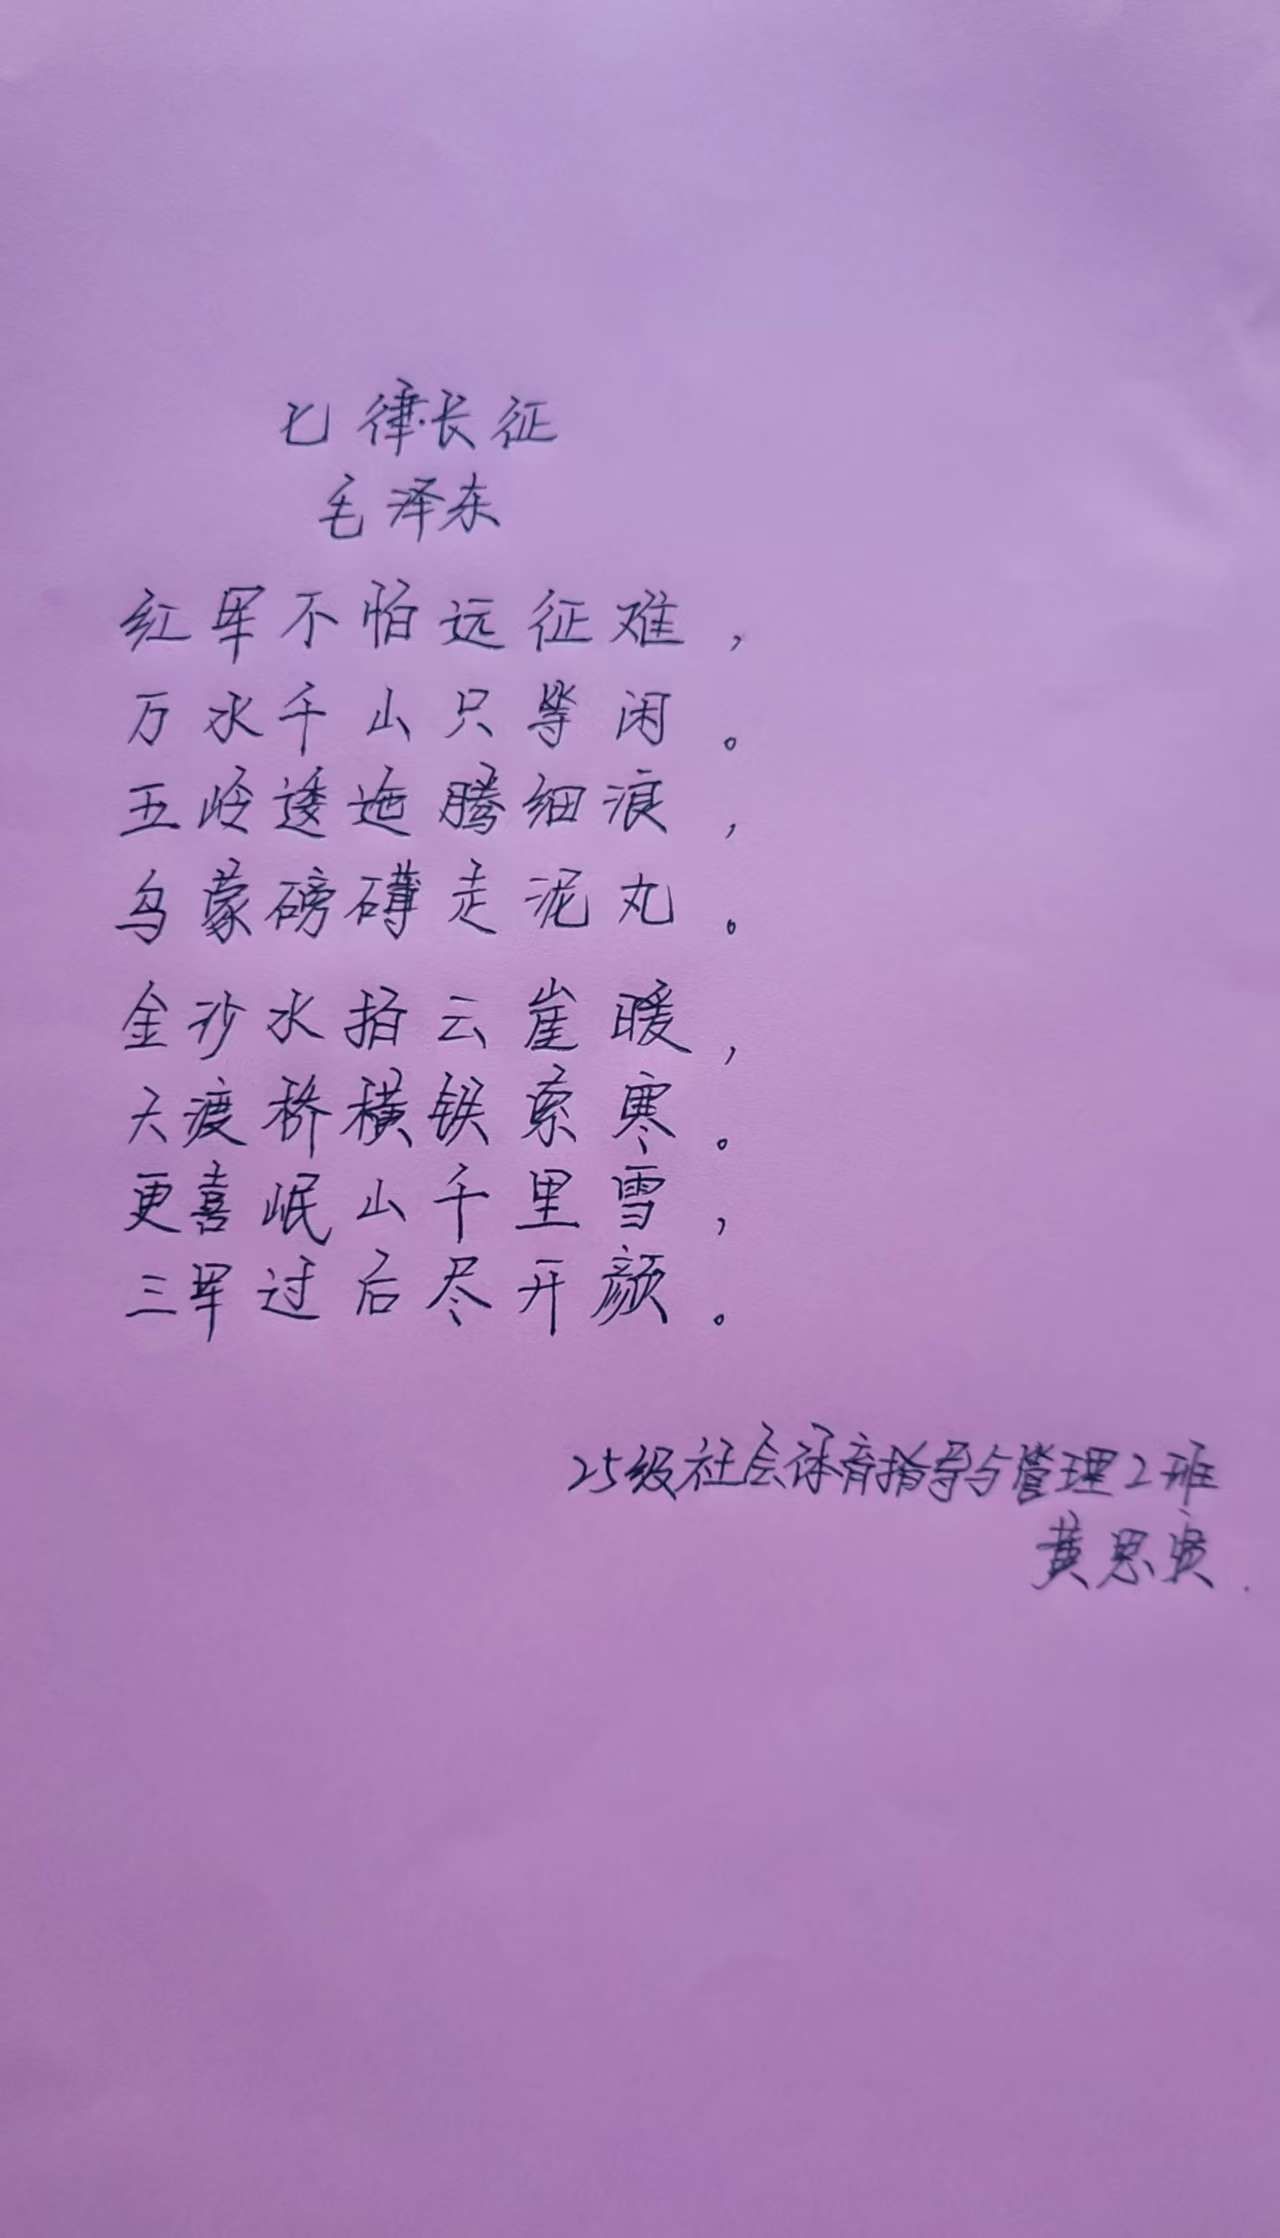 七律·长征
毛泽东
红军不怕远征难，
万水千山只等闲。
五岭逶迤腾细浪，
乌蒙磅礴走泥丸。
金沙水拍云崖暖，
大渡桥横铁索寒。
更喜岷山千里雪，
三军过后尽开颜。
25级社会体育指导与管理2班
黄思贤.